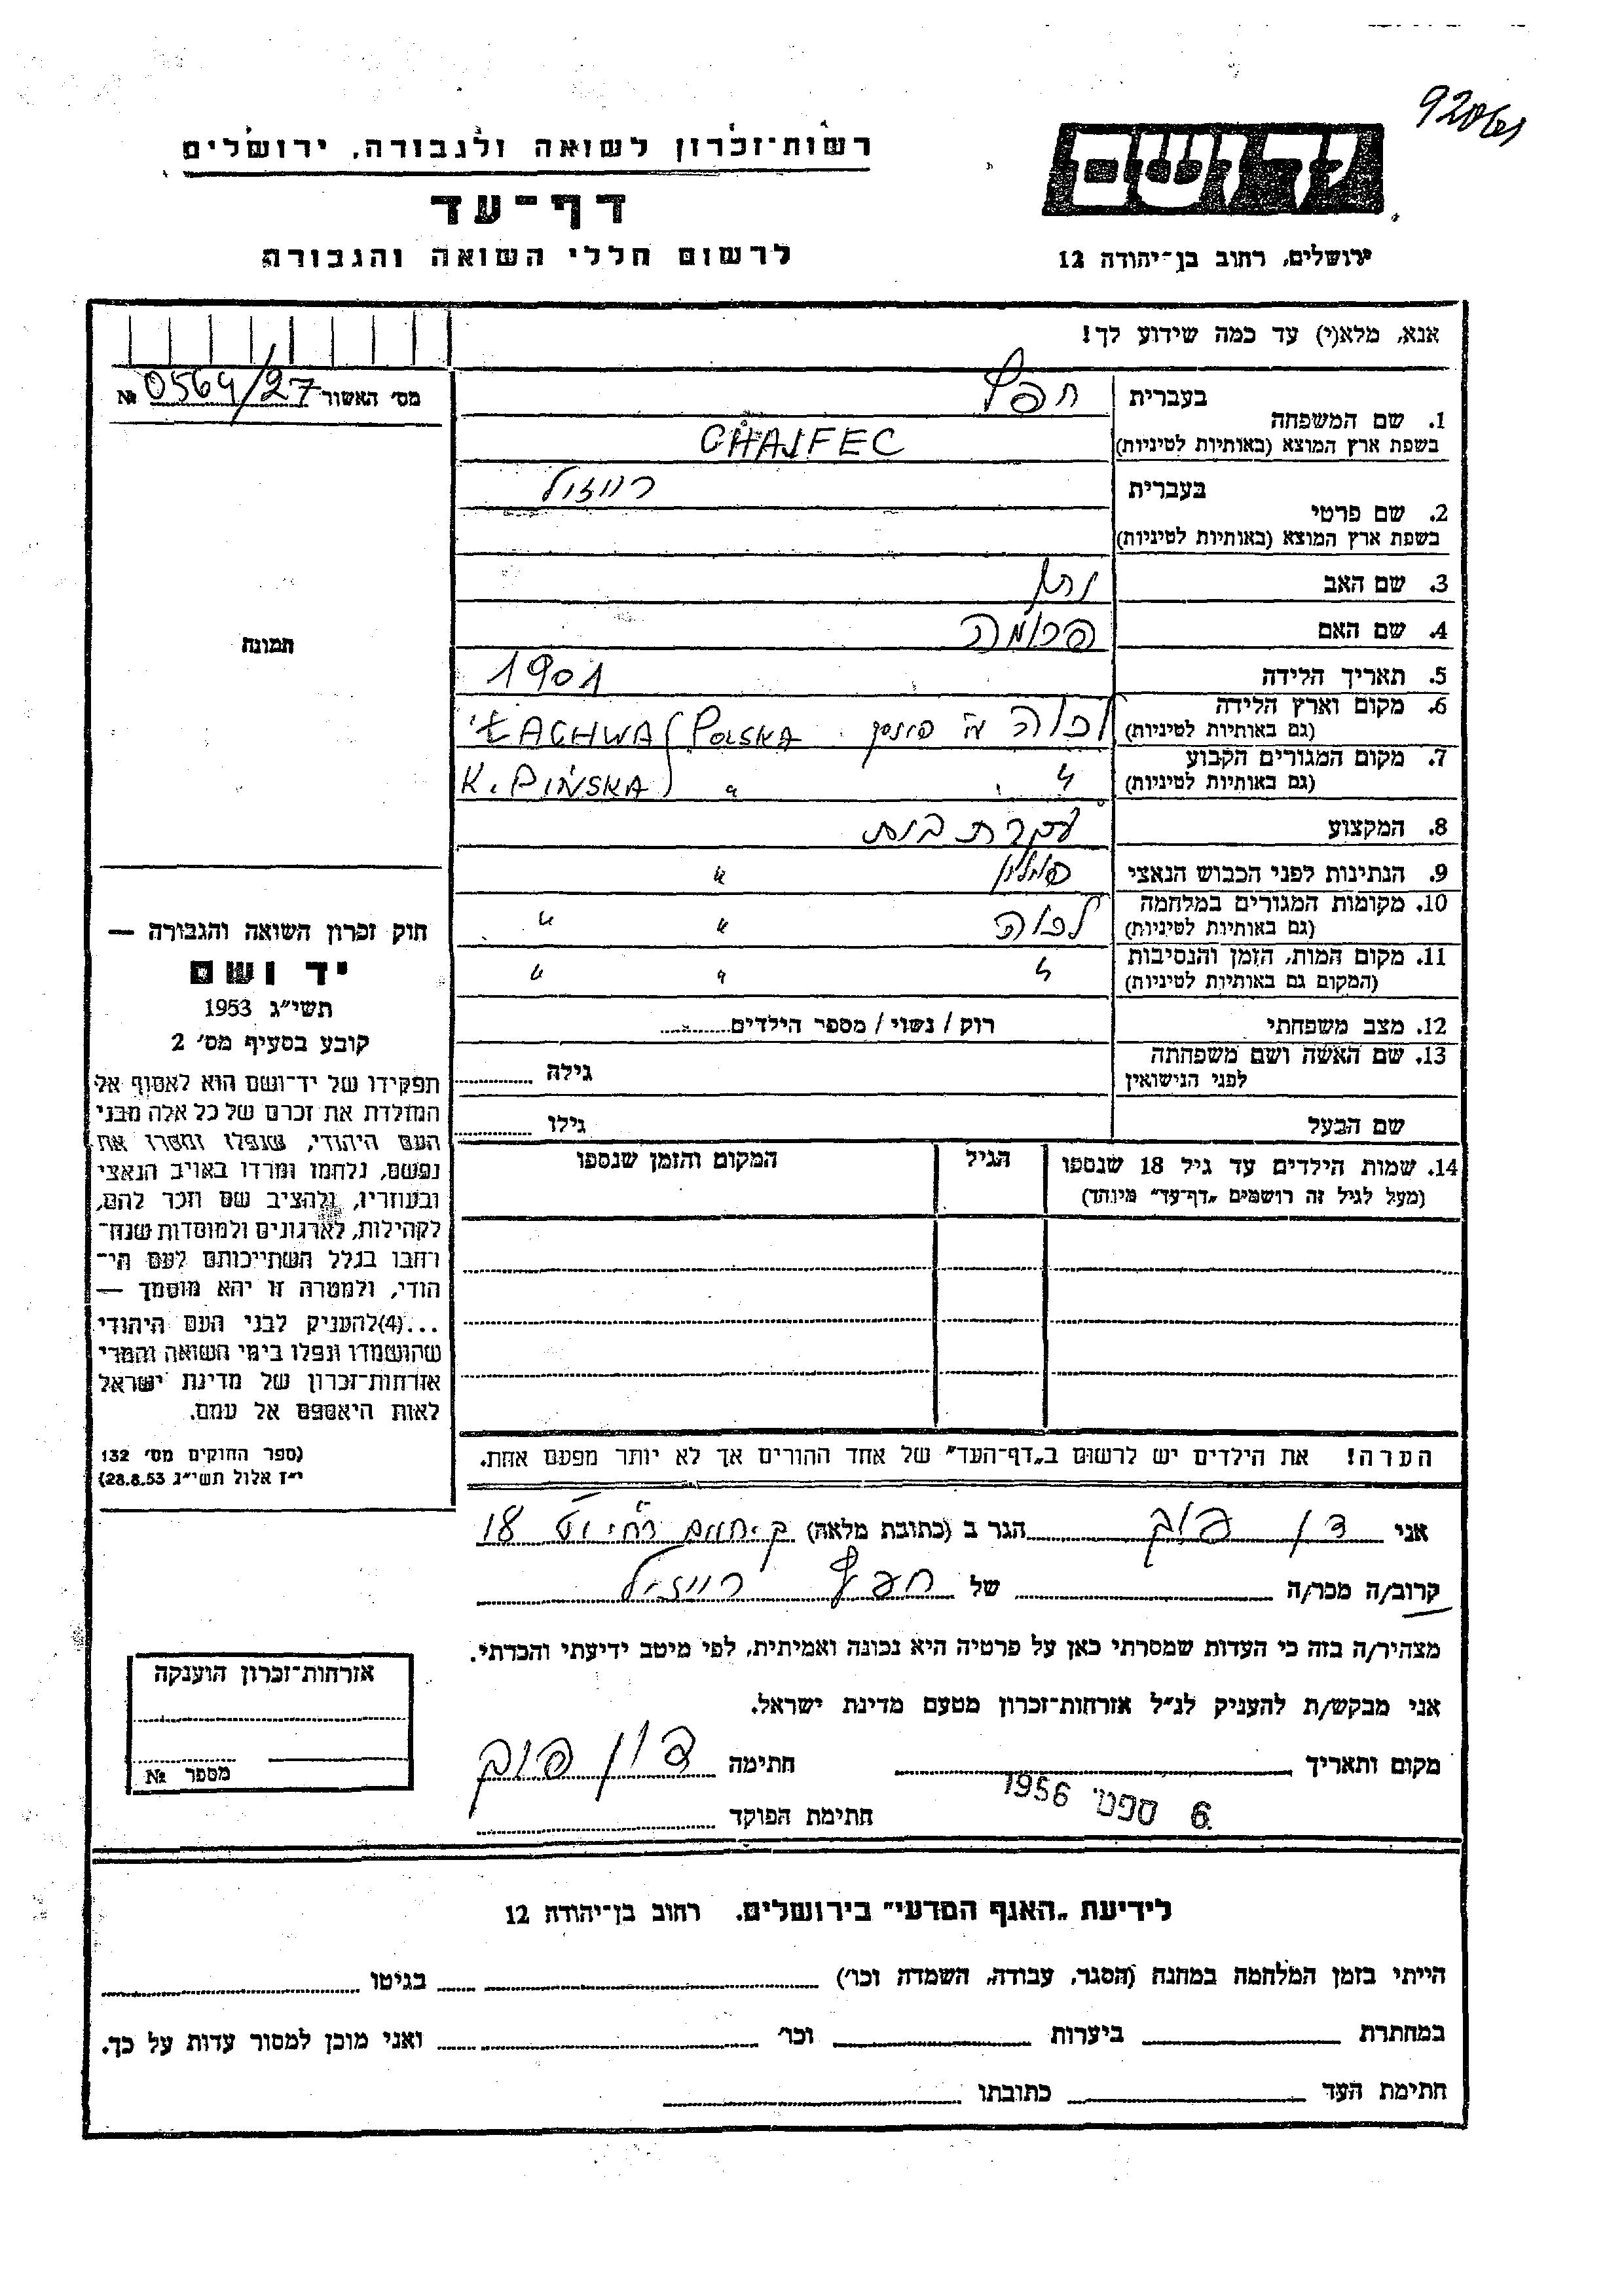 רשות־זכרון לשואה ולגבורה, ירושלים
דף־עד
לרשום חללי השואה והגבורה
יד ושם
ירושלים, רחוב בן־יהודה 12
אנא, מלא(י) עד כמה שידוע לך!
מס׳ האשור № 0564/27
1. שם המשפחה
בעברית חפץ
בשפת ארץ המוצא (באותיות לטיניות) CHAJFEC
2. שם פרטי
בעברית רייזל
בשפת ארץ המוצא (באותיות לטיניות)
3. שם האב נתן
4. שם האם פרומה
5. תאריך הלידה 1901
6. מקום וארץ הלידה לכוה ע״י פינסק ŁACHWA POLSKA
(גם באותיות לטיניות)
7. מקום המגורים הקבוע " " K. PIŃSKA
(גם באותיות לטיניות)
8. המקצוע עקרת בית
9. הנתינות לפני הכבוש הנאצי פולין "
10. מקומות המגורים במלחמה לכוה " "
(גם באותיות לטיניות)
11. מקום המות, הזמן והנסיבות " " "
(המקום גם באותיות לטיניות)
12. מצב משפחתי רוק / נשוי / מספר הילדים
13. שם האשה ושם משפחתה גילה
לפני הנישואין
שם הבעל גילו
14. שמות הילדים עד גיל 18 שנספו הגיל המקום והזמן שנספו
(מעל לגיל זה רושמים „דף־עד" מיוחד)
הערה! את הילדים יש לרשום ב„דף־העד" של אחד ההורים אך לא יותר מפעם אחת.
תמונה
חוק זכרון השואה והגבורה —
יד ושם
תשי״ג 1953
קובע בסעיף מס׳ 2
תפקידו של יד־ושם הוא לאסוף אל
המולדת את זכרם של כל אלה מבני
העם היהודי, שנפלו ומסרו את
נפשם, נלחמו ומרדו באויב הנאצי
ובעוזריו, ולהציב שם וזכר להם,
לקהילות, לארגונים ולמוסדות שנח־
רבו בגלל השתייכותם לעם הי־
הודי, ולמטרה זו יהא מוסמך —
...(4)להעניק לבני העם היהודי
שהושמדו ונפלו בימי השואה והמרי
אזרחות־זכרון של מדינת ישראל
לאות היאספם אל עמם.
(ספר החוקים מס׳ 132
י״ז אלול תשי״ג 28.8.53)
אני דן פוק הגר ב (כתובת מלאה) 18
קרוב/ה מכר/ה של חפץ רייזל
מצהיר/ה בזה כי העדות שמסרתי כאן על פרטיה היא נכונה ואמיתית, לפי מיטב ידיעתי והכרתי.
אני מבקש/ת להעניק לנ״ל אזרחות־זכרון מטעם מדינת ישראל.
מקום ותאריך חתימה דן פוק
6 ספט׳ 1956
חתימת הפוקד
אזרחות־זכרון הוענקה
מספר №
לידיעת „האגף המדעי" בירושלים, רחוב בן־יהודה 12
הייתי בזמן המלחמה במחנה (הסגר, עבודה, השמדה וכו׳) בגיטו
במחתרת ביערות וכו׳ ואני מוכן למסור עדות על כך.
חתימת העד כתובתו